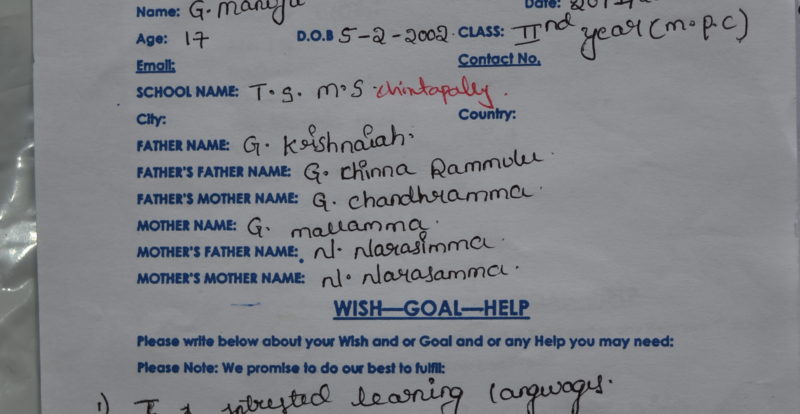 Name: G. Manjula
Date:
Age: 17 D.O.B 5-2-2002. CLASS: IInd year (m.p.c)
Email: Contact No.
SCHOOL NAME: T.S. M.S chintapally.
City: Country:
FATHER NAME: G. Krishnaiah.
FATHER'S FATHER NAME: G. chinna Rammulu.
FATHER'S MOTHER NAME: G. chandhramma.
MOTHER NAME: G. mallamma.
MOTHER'S FATHER NAME: N. Narasimma.
MOTHER'S MOTHER NAME: N. Narasamma.
WISH—GOAL—HELP
Please write below about your Wish and or Goal and or any Help you may need:
Please Note: We promise to do our best to fulfil:
1) I intrested learning languages.